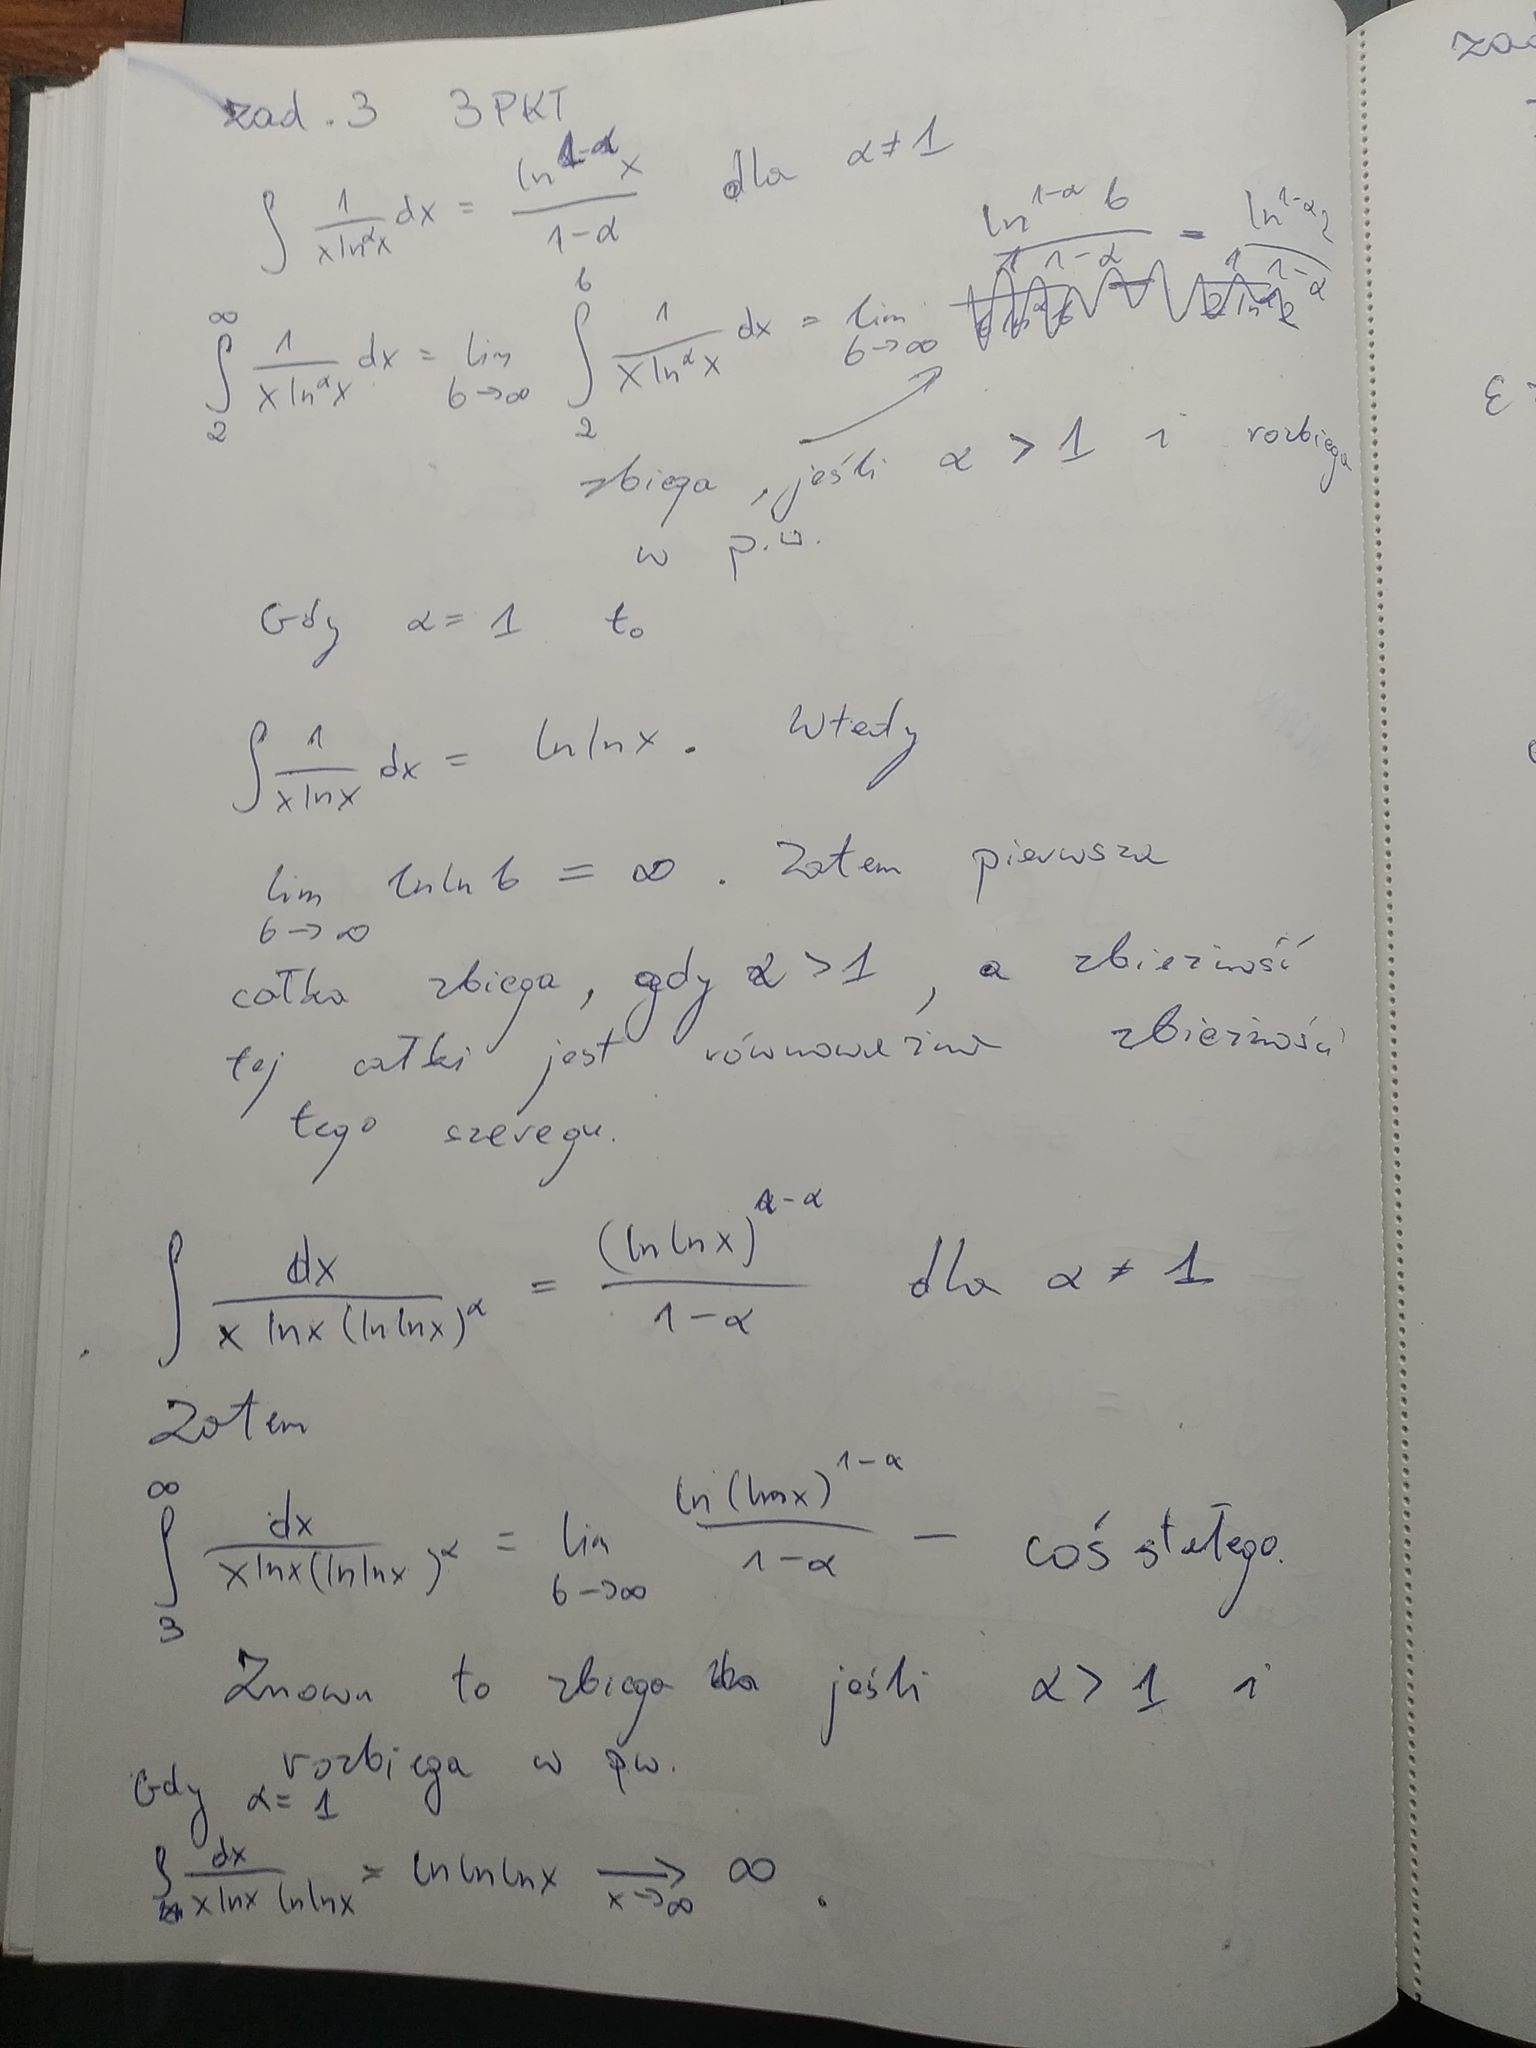 zad. 3 3PKT
∫ 1/(x ln^α x) dx = ln^{1-α} x / (1-α) dla α ≠ 1
∫_2^∞ 1/(x ln^α x) dx = lim_{b→∞} ∫_2^b 1/(x ln^α x) dx = lim_{b→∞} ln^{1-α} b / (1-α) = ln^{1-α} 2 / (1-α)
zbiega, jeśli α > 1 i rozbiega
w p.w.
Gdy α = 1 to
∫ 1/(x ln x) dx = ln ln x. Wtedy
lim_{b→∞} ln ln b = ∞. Zatem pierwsza
całka zbiega, gdy α > 1, a zbieżność
tej całki jest równoważna zbieżności
tego szeregu.
∫ dx/(x ln x (ln ln x)^α) = (ln ln x)^{1-α} / (1-α) dla α ≠ 1
Zatem
∫_3^∞ dx/(x ln x (ln ln x)^α) = lim_{b→∞} ln(ln x)^{1-α} / (1-α) - coś stałego.
Znowu to zbiega jeśli α > 1 i
rozbiega w pw.
Gdy α = 1
∫ dx/(x ln x ln ln x) = ln ln ln x →_{x→∞} ∞.
zad
ε